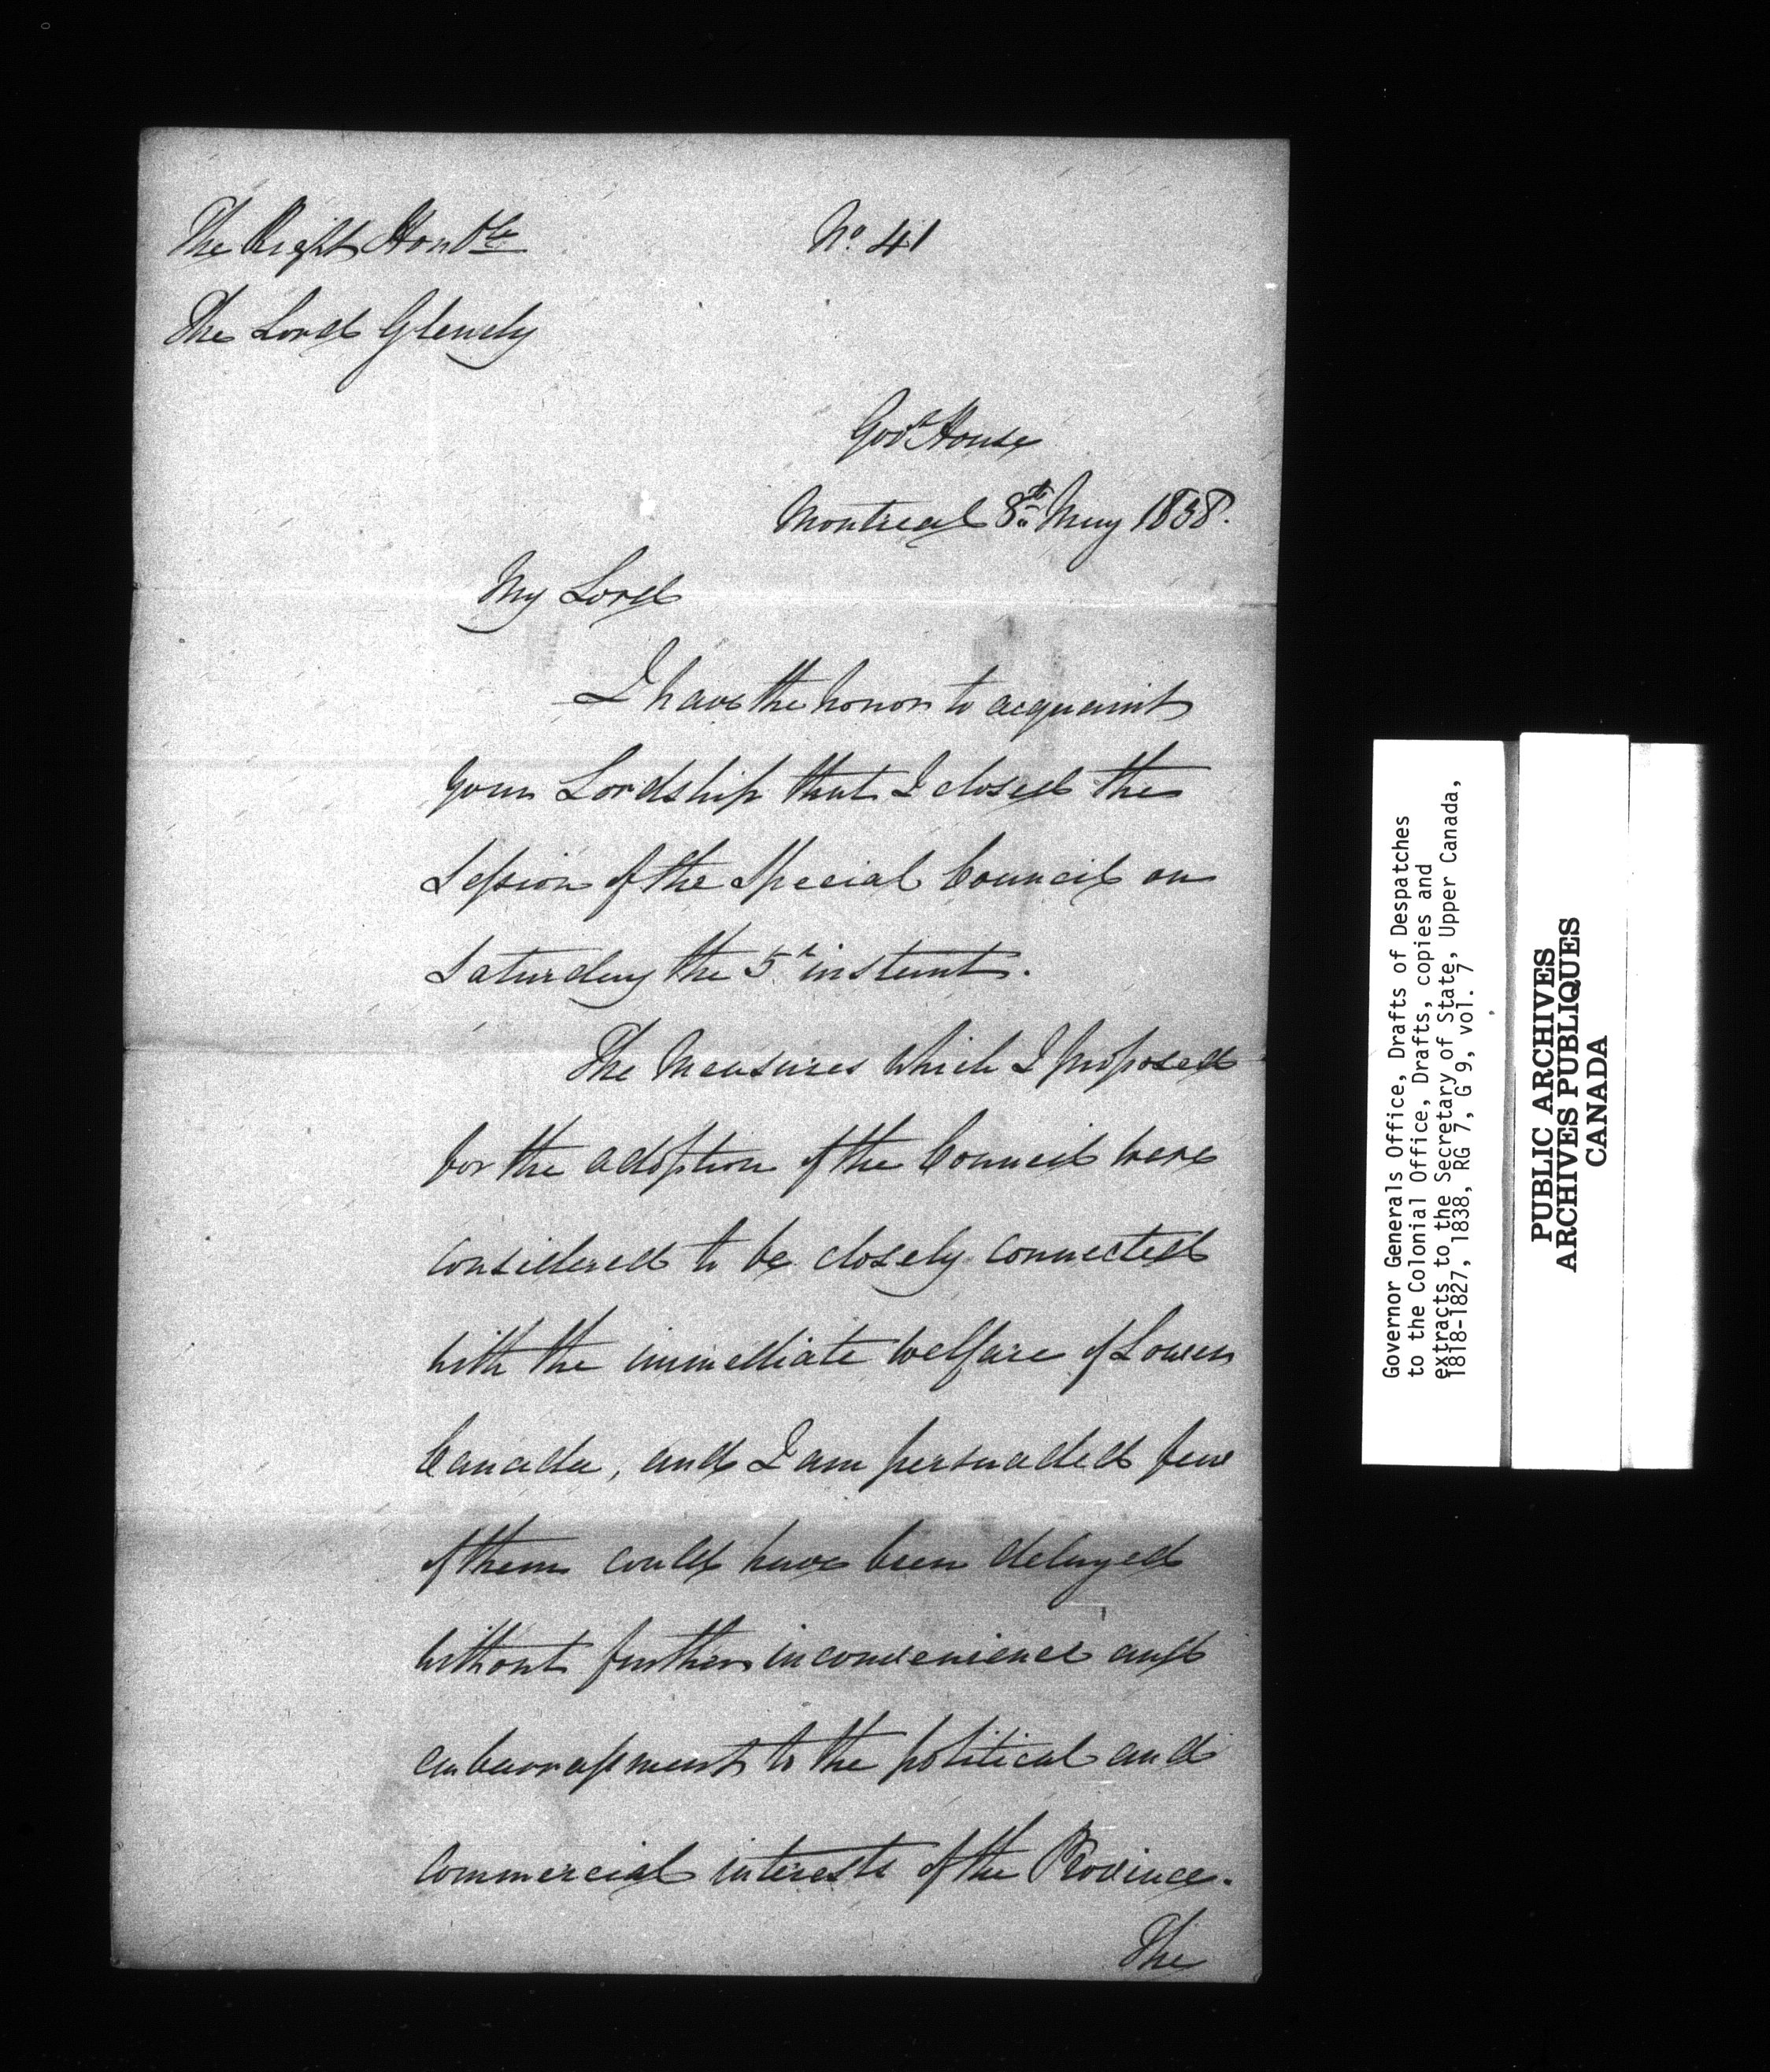 The Right Honble
No. 41
The Lord Glenelg
Govt House
Montreal 8th May 1838.
My Lord
I have the honor to acquaint
your Lordship that I closed the
Session of the Special Council on
Saturday the 5th instant.
The Measures which I proposed
for the adoption of the Council were
considered to be closely connected
with the immediate welfare of Lower
Canada, and I am persuaded few
of them could have been delayed
without further inconvenience and
embarrassment to the political and
commercial interests of the Province.
The
Governor Generals Office, Drafts of Despatches
to the Colonial Office, Drafts, copies and
extracts to the Secretary of State, Upper Canada,
1818-1827, 1838, RG 7, G 9, vol. 7
PUBLIC ARCHIVES
ARCHIVES PUBLIQUES
CANADA